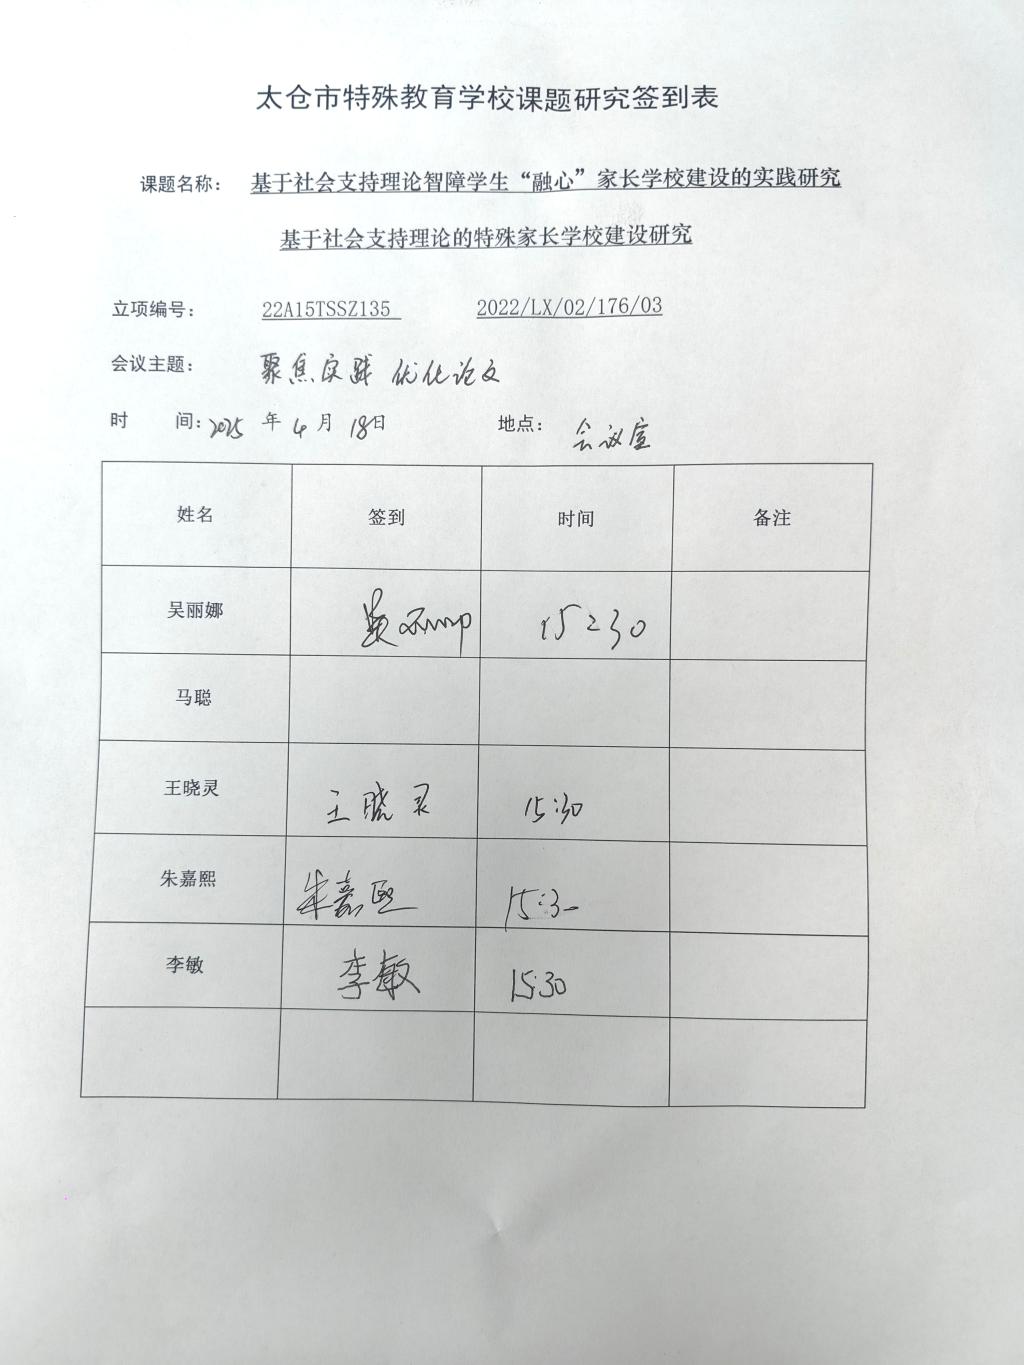 太仓市特殊教育学校课题研究签到表
课题名称： 基于社会支持理论智障学生“融心”家长学校建设的实践研究
基于社会支持理论的特殊家长学校建设研究
立项编号： 22A15TSSZ135 2022/LX/02/176/03
会议主题： 聚焦实践 优化论文
时 间：2025 年 4 月 18日 地点： 会议室
姓名 签到 时间 备注
吴丽娜 吴丽娜 15:30
马聪
王晓灵 王晓灵 15:30
朱嘉熙 朱嘉熙 15:3
李敏 李敏 15:30